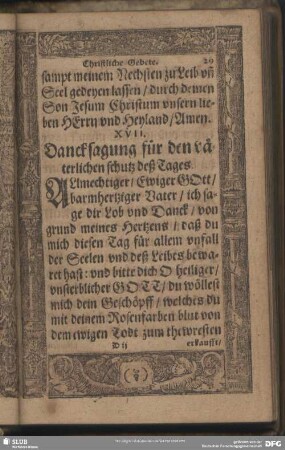 Christliche Gebete. 29
sampt meinem Nechsten zu Leib vñ
Seel gedeyen lassen / durch deinen
Son Jesum Christum vnsern lie-
ben HErrn vnd Heyland / Amen.
XVII.
Dancksagung für den vä-
terlichen schutz deß Tages.
ALlmechtiger / Ewiger GOtt /
barmhertziger Vater / ich sa-
ge dir Lob vnd Danck / von
grund meines Hertzens / daß du
mich diesen Tag für allem vnfall
der Seelen vnd deß Leibes bewa-
ret hast: vnd bitte dich O heiliger /
vnsterblicher GOTT / du wöllest
mich dein Geschöpff / welches du
mit deinem Rosenfarben blut von
dem ewigen Todt zum thewresten
D ij erkaufft /
SLUB
DFG